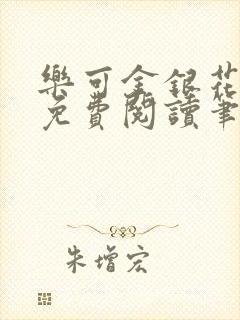 樂可金銀花
免費閱讀筆
朱增宏